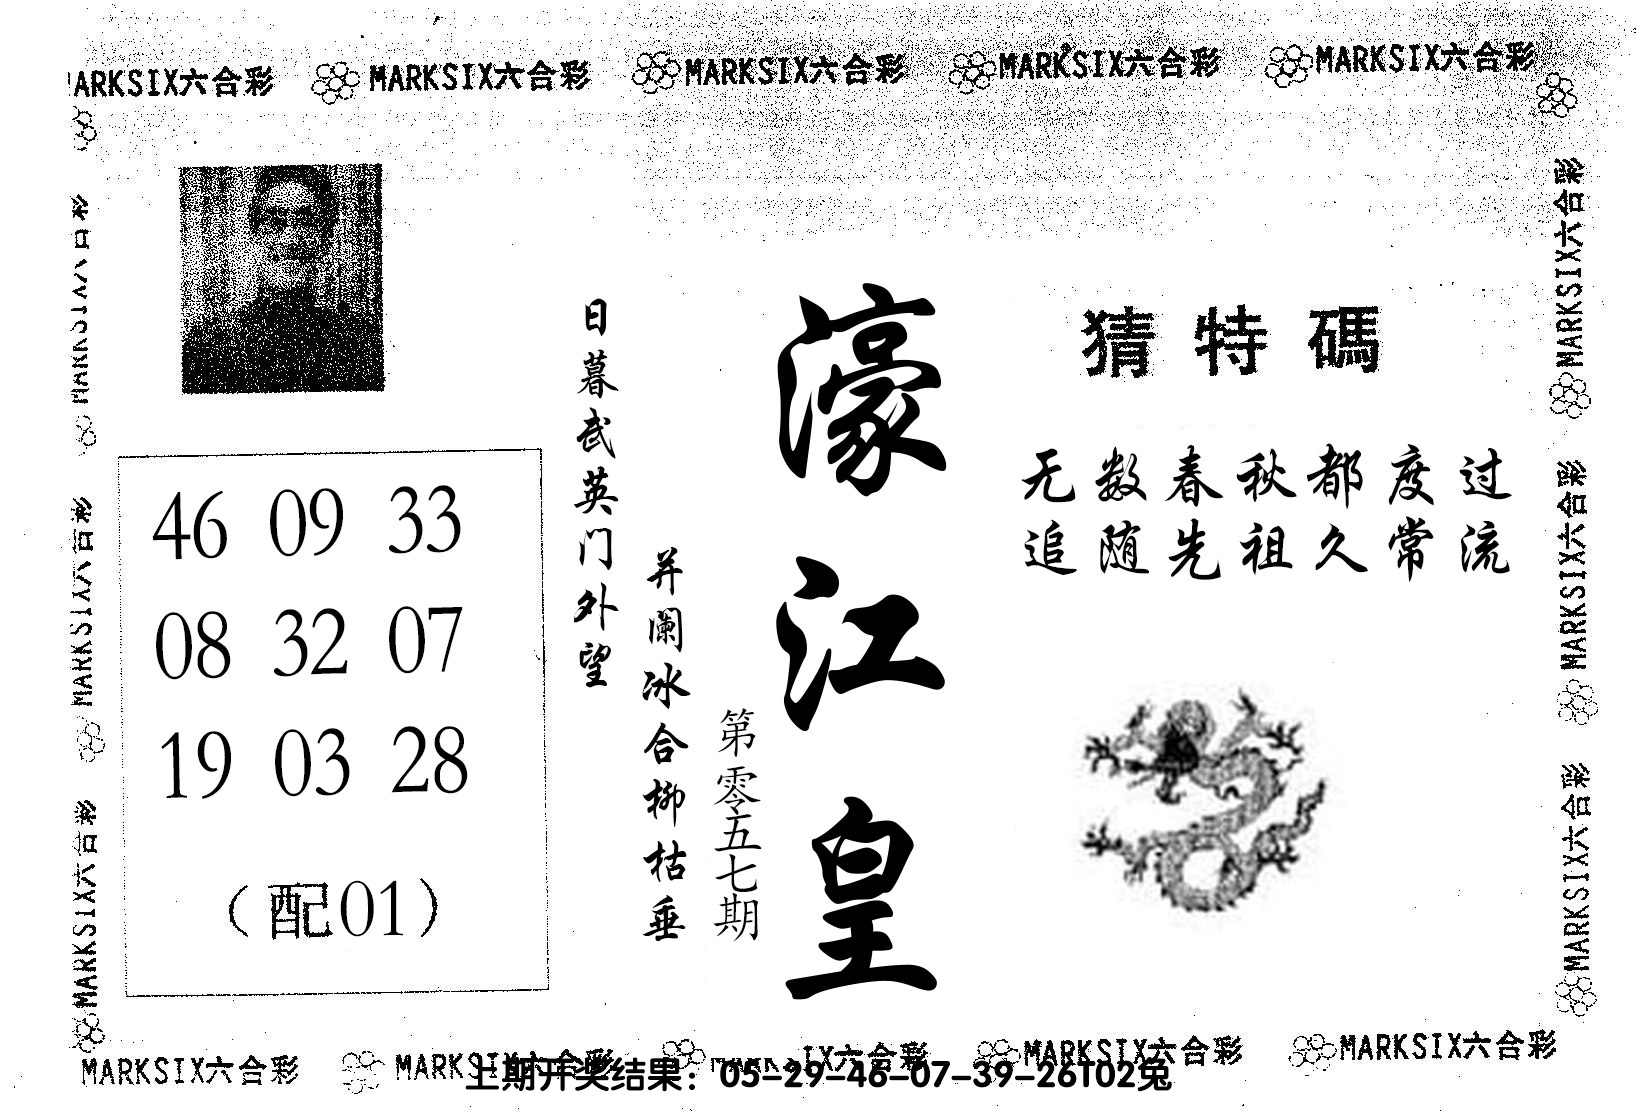 MARKSIX六合彩 MARKSIX六合彩 MARKSIX六合彩 MARKSIX六合彩 MARKSIX六合彩
MARKSIX六合彩
MARKSIX六合彩
MARKSIX六合彩
46 09 33
08 32 07
19 03 28
(配01)
日暮武英门外望
井阑冰合柳枯垂
第零五七期
濠江皇
猜特碼
无数春秋都度过
追随先祖久常流
MARKSIX六合彩
MARKSIX六合彩
MARKSIX六合彩
MARKSIX六合彩 MARKSIX六合彩 IX六合彩 MARKSIX六合彩 MARKSIX六合彩
上期开奖结果：05-29-46-07-39-26T02兔